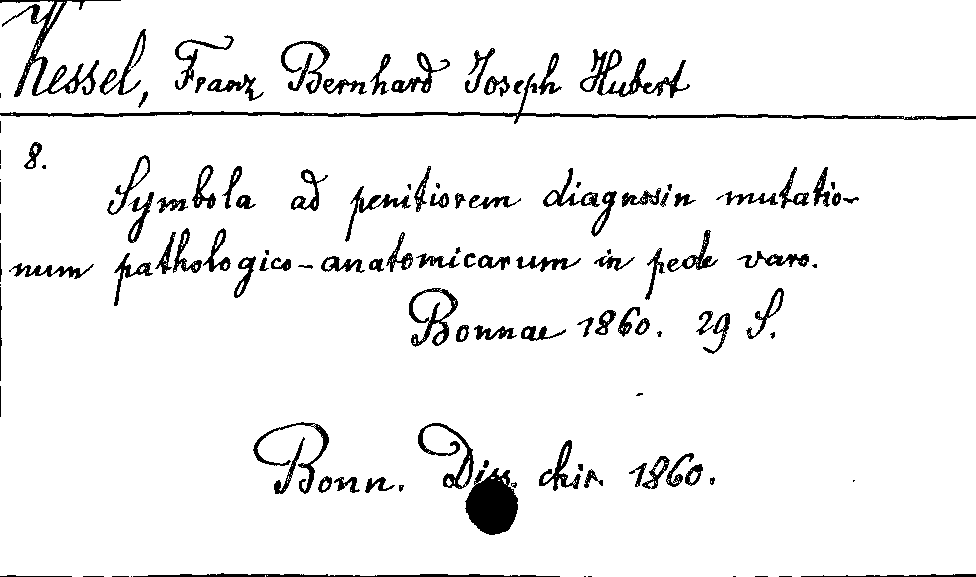 Kessel, Franz Bernhard Joseph Hubert
8.
Symbola ad penitiorem diagnosin mutatio-
num pathologico-anatomicarum in pede varo.
Bonnae 1860. 29 S.
Bonn. Diss. chir. 1860.